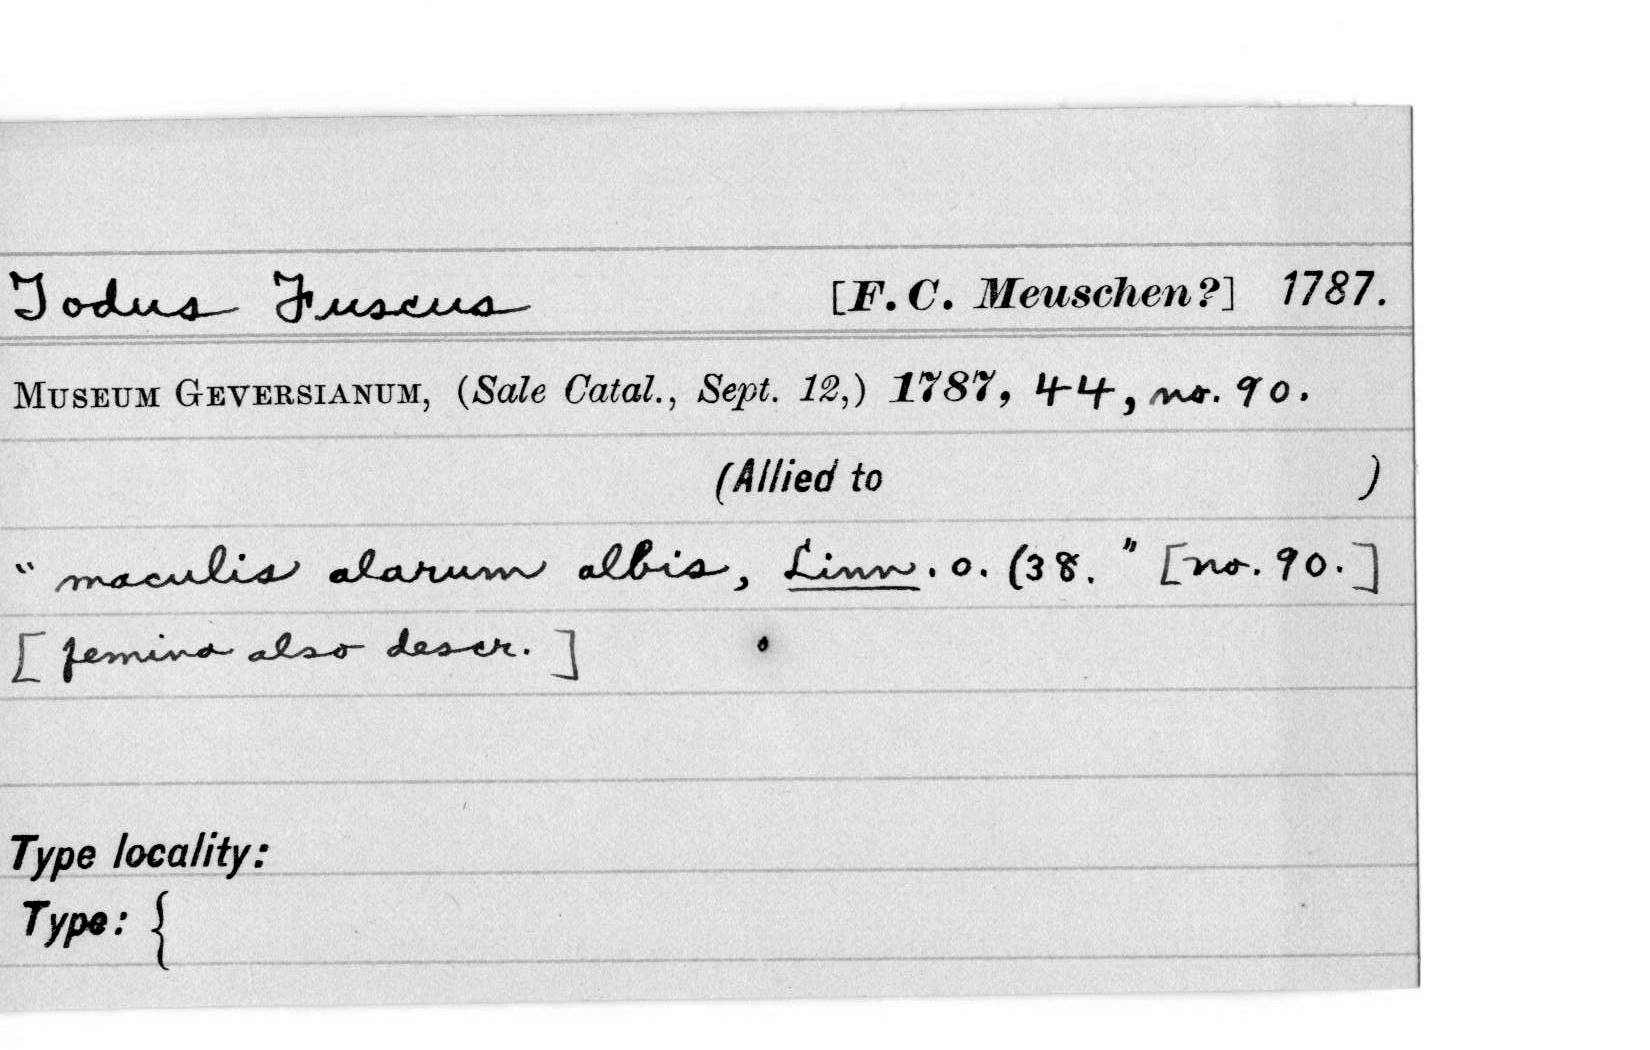 Todus Fuscus [F. C. Meuschen?] 1787.
MUSEUM GEVERSIANUM, (Sale Catal., Sept. 12,) 1787, 44, no. 90.
(Allied to )
" maculis alarum albis, Linn. o. (38. " [no. 90.]
[ femina also descr. ]
Type locality:
Type: {